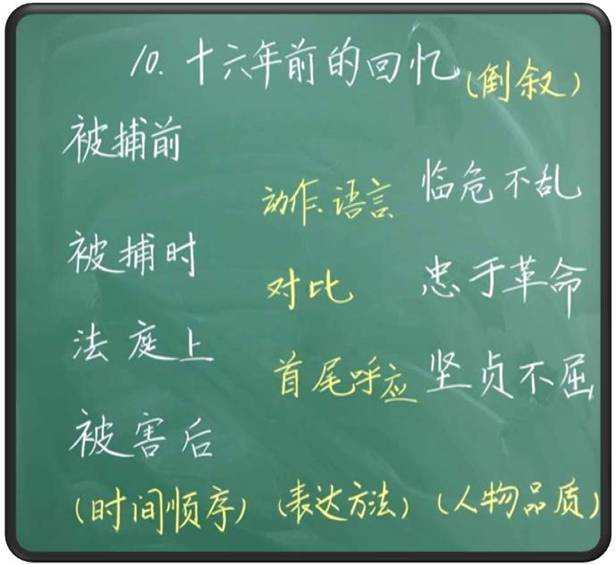 10. 十六年前的回忆(倒叙)
被捕前
动作、语言 临危不乱
被捕时
对比 忠于革命
法庭上
首尾呼应 坚贞不屈
被害后
(时间顺序) (表达方法) (人物品质)